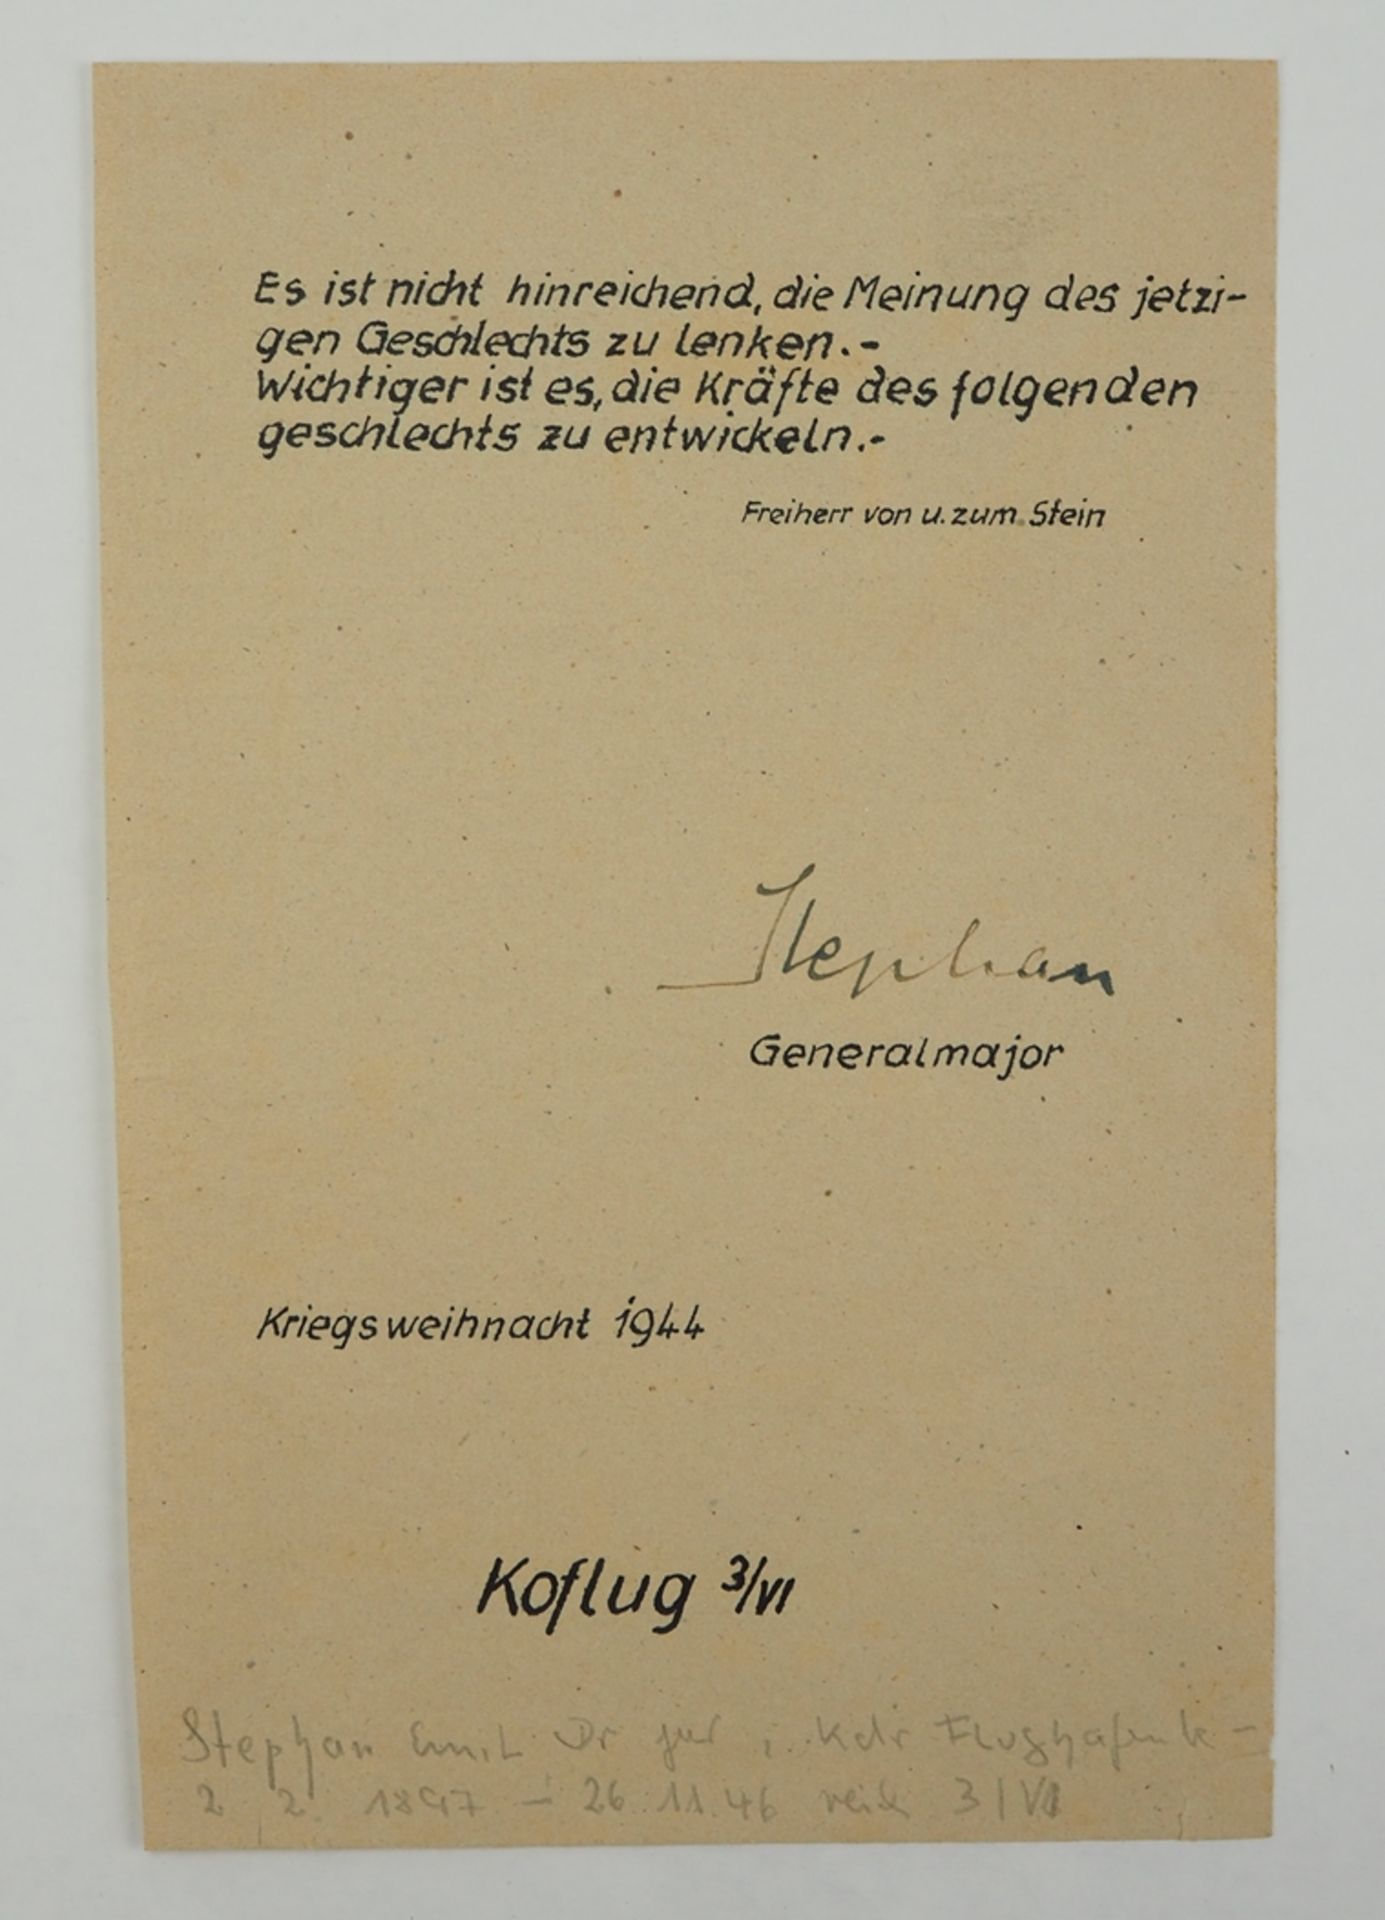 Es ist nicht hinreichend, die Meinung des jetzi-
gen Geschlechts zu lenken.-
Wichtiger ist es, die Kräfte des folgenden
geschlechts zu entwickeln.-
Freiherr von u. zum Stein
Stephan
Generalmajor
Kriegsweihnacht 1944
Koflug 3/VI
Stephan Emil Dr jur , Kdr Flughafenk-
2 2. 1897 - 26.11.46 3/VI